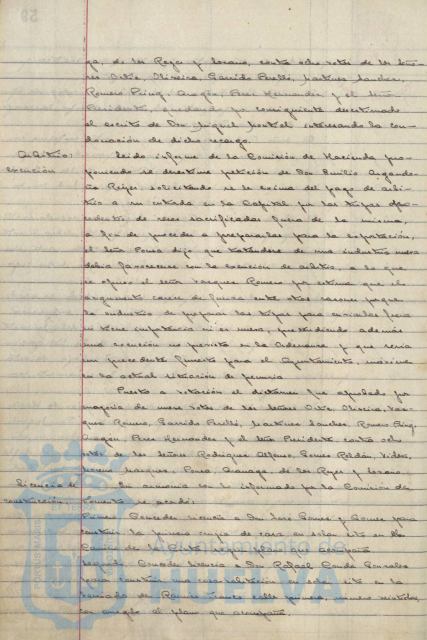 ga, de los Reyes y Lozano, contra ocho votos de los Seño-
res Ortiz, Oliveira, Garrido Perelló, Martinez Sanchez,
Romero Pring, Aragón, Perez Hernandez y el Señor
Presidente, quedando por consiguiente desestimado
el escrito de Don Miguel interesando la con-
donación de dicho recargo.
Arbitrio: Leido informe de la Comisión de Hacienda pro-
exención poniendo se desestime petición de Don Emilio
Reyes, solicitando se le exima del pago de arbi-
trio a su entrada en la Capital por las tripas
de reses sacrificadas fuera de la misma,
a fin de proceder a prepararlas para la exportación,
el Señor Ponce dijo que tratandose de una industria nueva
debia favorecerse con la exención de arbitrio, a lo que
se opuso el Señor Vazquez Romero por estimar que el
argumento carece de fuerza entre otras razones porque
la industria de preparar las tripas para enviarlas fuera
no tiene importancia ni es nueva, pretendiendo además
una exención no prevista en la Ordenanza y que seria
un precedente funesto para el Ayuntamiento, máxime
en la actual situación de penuria.
Puesto a votación el dictamen fue aprobado por
mayoria de nueve votos de los Señores Ortiz, Oliveira, Vaz-
quez Romero, Garrido Perelló, Martinez Sanchez, Romero Pring,
Aragón, Perez Hernandez y el Señor Presidente contra ocho
votos de los Señores Rodriguez Alfonso, Gomez Roldán, Vides,
Moreno Marquez, Ponce, de los Reyes y Lozano.
Licencia de En armonia con lo informado por la Comisión de
construcción: Fomento se acordó:
Primero: Conceder licencia a Don José Gomez y Gomez para
construir la primera crujia de casa en solar sito en
Camino de la Cinta, segun plano que acompaña
Segundo: Conceder licencia a Don Rafael Conde Gonzalez
para construir una casa habitación en solar sito en la
barriada de calle primera, numero veintidos,
con arreglo al plano que acompaña.
Ayuntamiento de
HUELVA